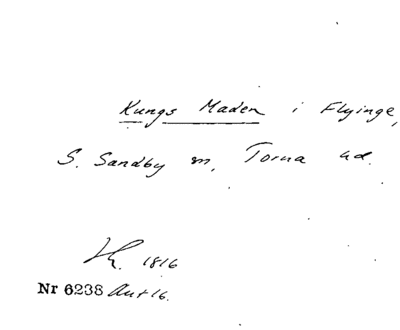 Kungs Maden i Flyinge,
S. Sandby sn, Torna hd.
1816
Nr 6238 Ant 16.